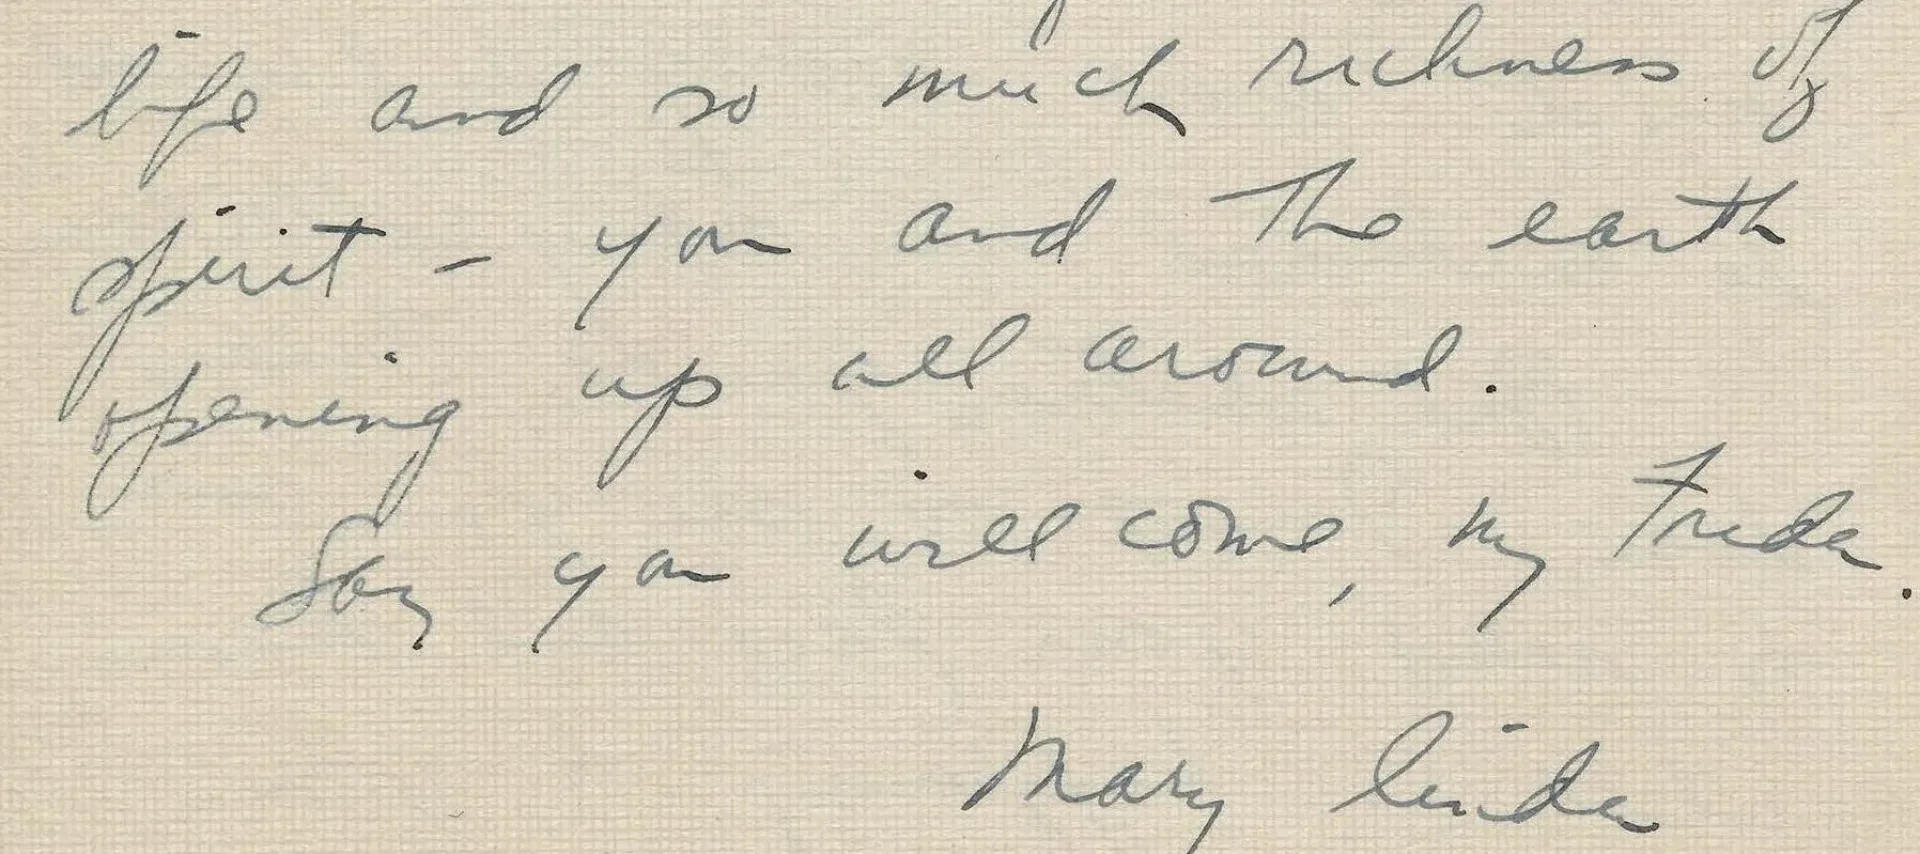 life and so much richness of
spirit – you and the earth
opening up all around.
Say you will come, my Freda.
Mary linda